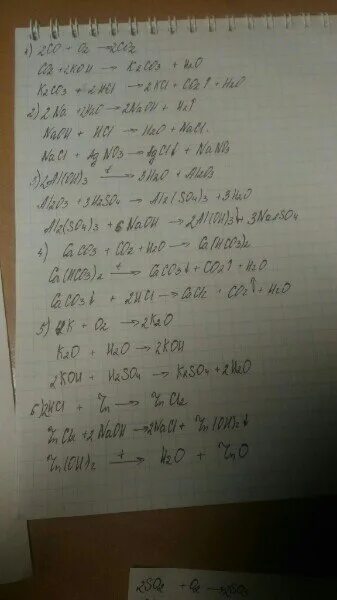 1) 2CO + O2 → 2CO2
CO2 + 2KOH → K2CO3 + H2O
K2CO3 + 2HCl → 2KCl + CO2↑ + H2O
2) 2Na + 2H2O → 2NaOH + H2↑
NaOH + HCl → H2O + NaCl.
NaCl + AgNO3 → AgCl↓ + NaNO3
3) 2Al(OH)3 →t 3H2O + Al2O3
Al2O3 + 3H2SO4 → Al2(SO4)3 + 3H2O
Al2(SO4)3 + 6NaOH → 2Al(OH)3↓ + 3Na2SO4
4) CaCO3 + CO2 + H2O → Ca(HCO3)2
Ca(HCO3)2 →t CaCO3↓ + CO2↑ + H2O
CaCO3↓ + 2HCl → CaCl2 + CO2↑ + H2O
5) 4K + O2 → 2K2O
K2O + H2O → 2KOH
2KOH + H2SO4 → K2SO4 + 2H2O
6) 2HCl + Zn → ZnCl2
ZnCl2 + 2NaOH → 2NaCl + Zn(OH)2↓
Zn(OH)2 →t H2O + ZnO
2SO2 + O2 → 2SO3